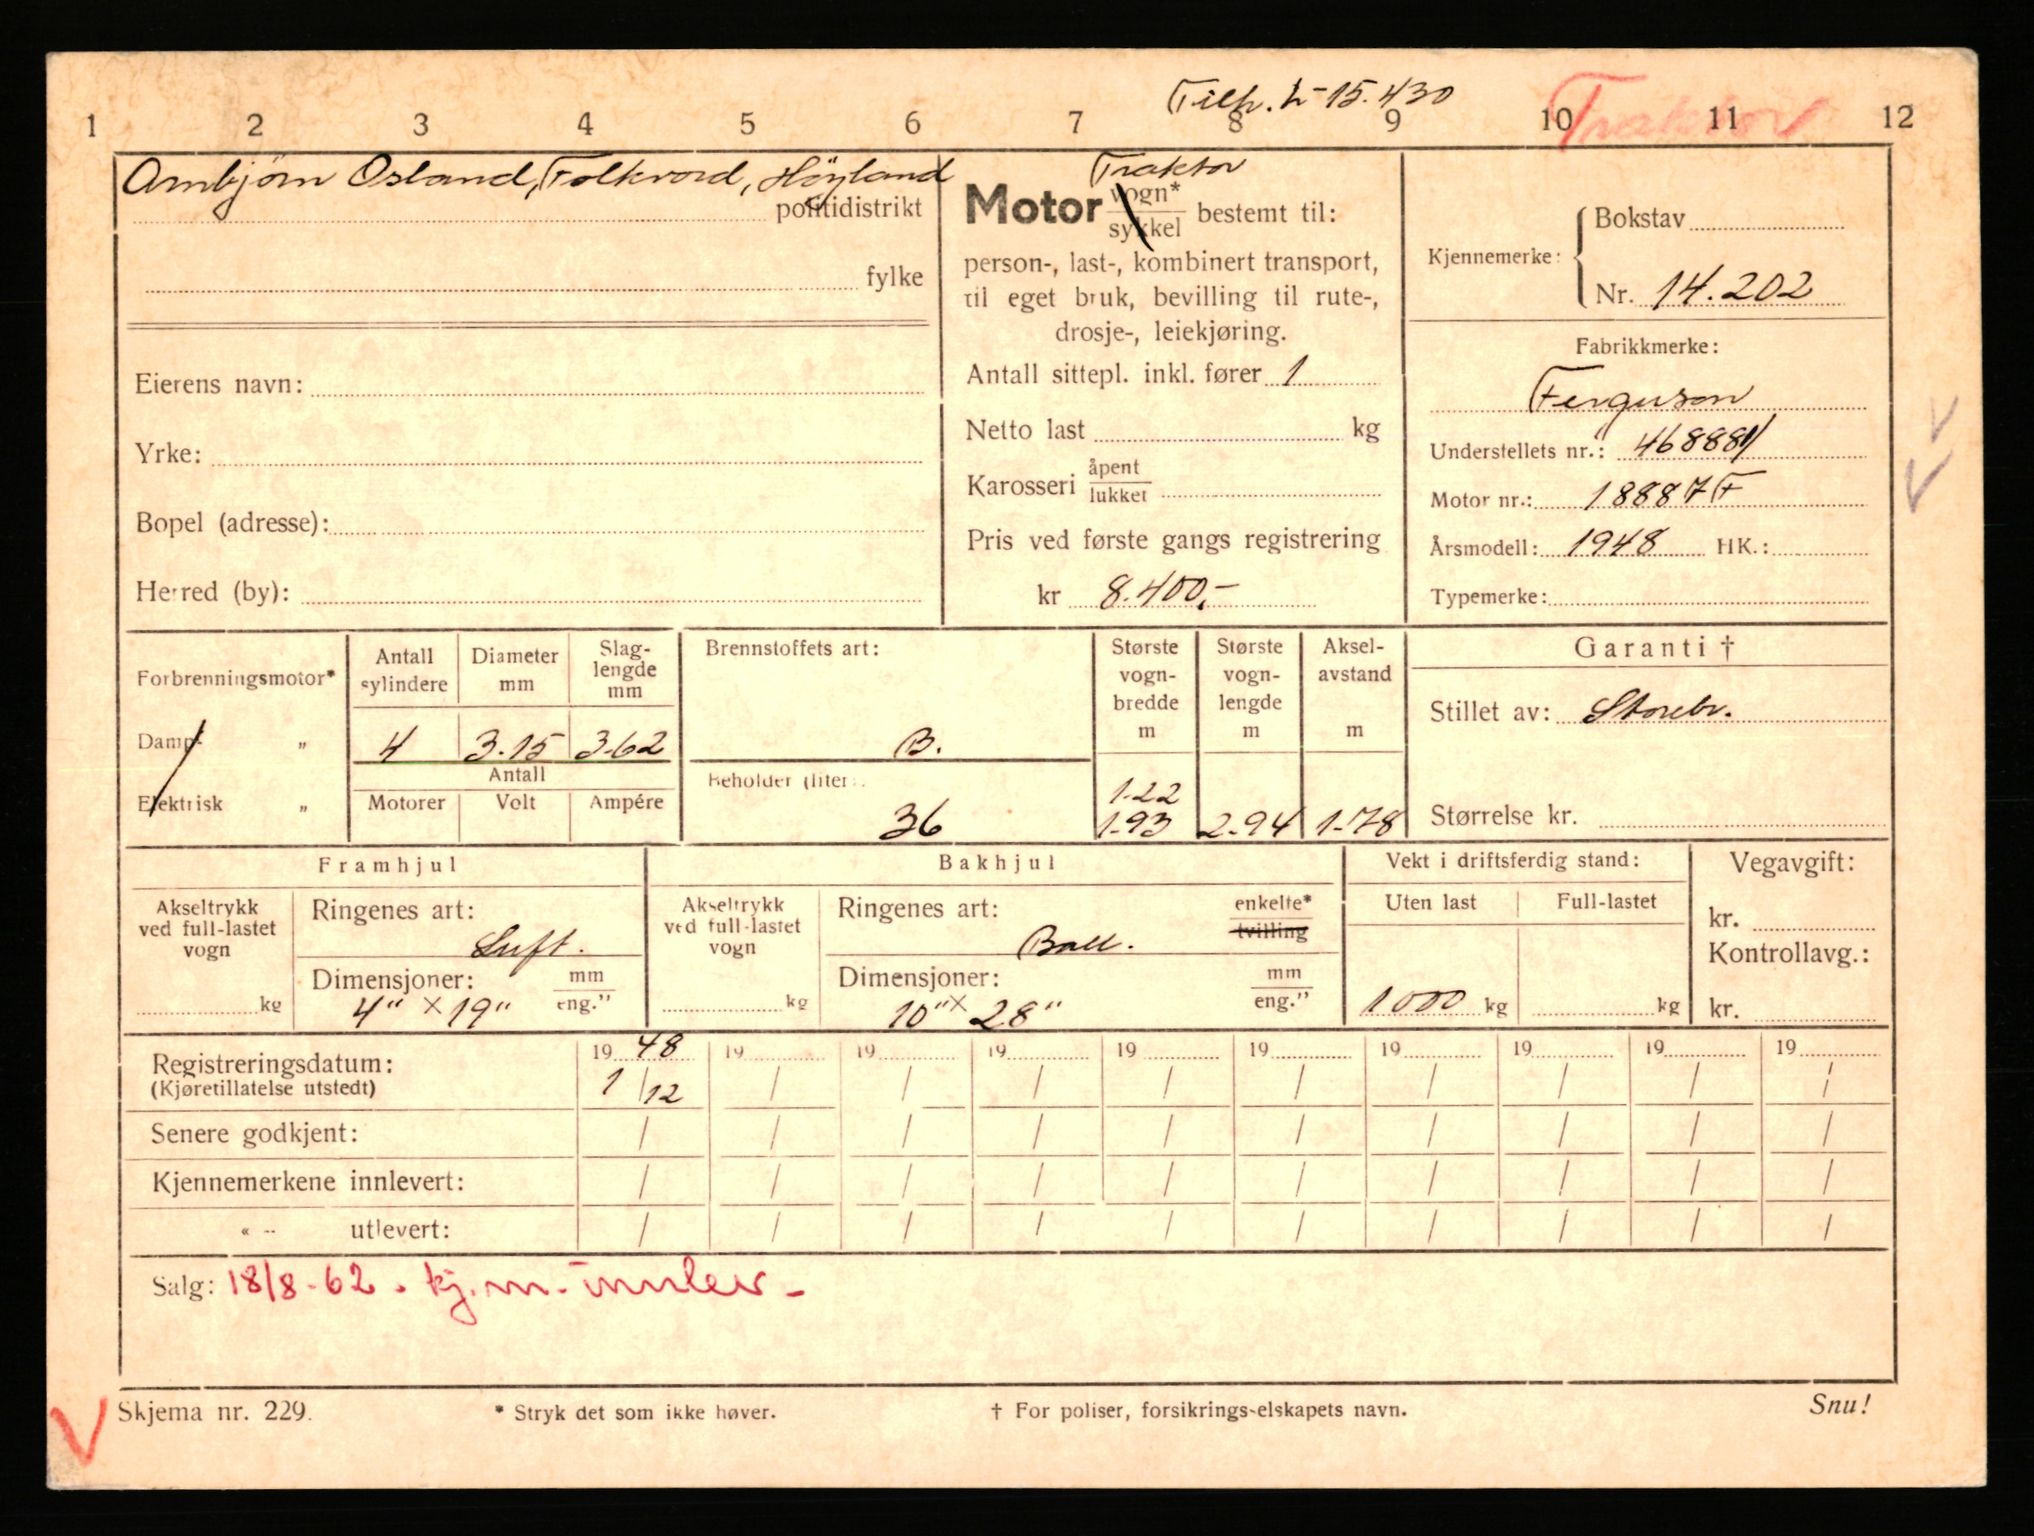 Tilh. L-15.430
Traktor
1 2 3 4 5 6 7 8 9 10 11 12
Arnbjörn Osland, Folkvord, Höyland
politidistrikt
fylke
Eierens navn:
Yrke:
Bopel (adresse):
Herred (by):
Traktor
Motor vogn* sykkel bestemt til:
person-, last-, kombinert transport,
til eget bruk, bevilling til rute-,
drosje-, leiekjøring.
Antall sittepl. inkl. fører 1
Netto last kg
Karosseri åpent lukket
Pris ved første gangs registrering
kr 8.400,-
Kjennemerke:
Bokstav
Nr. 14.202
Fabrikkmerke:
Ferguson
Understellets nr.: 468881
Motor nr.: 18887F
Årsmodell: 1948 HK.:
Typemerke:
Forbrenningsmotor*
Damp- „
Elektrisk „
Antall sylindere
Diameter mm
Slaglengde mm
4 3.15 3.62
Antall
Motorer Volt Ampére
Brennstoffets art:
B.
Beholder (liter):
36
Største vognbredde m
1.22
1.93
Største vognlengde m
2.94
Akselavstand m
1.78
Garanti †
Stillet av: Storebr.
Størrelse kr.
Framhjul
Akseltrykk
ved full-lastet
vogn
kg
Ringenes art:
Luft.
Dimensjoner: mm eng."
4" x 19"
Bakhjul
Akseltrykk
ved full-lastet
vogn
kg
Ringenes art: enkelte* tvilling
Ball.
Dimensjoner: mm eng."
10" x 28"
Vekt i driftsferdig stand:
Uten last Full-lastet
1000 kg kg
Vegavgift:
kr.
Kontrollavg.:
kr.
Registreringsdatum: 19 48 19 19 19 19 19 19 19 19 19
(Kjøretillatelse utstedt) 1/12 / / / / / / / / /
Senere godkjent: / / / / / / / / / /
Kjennemerkene innlevert: / / / / / / / / / /
« -- utlevert: / / / / / / / / / /
Salg: 18/8-62. kj.m. innlev-
Skjema nr. 229.
* Stryk det som ikke høver.
† For poliser, forsikringsselskapets navn.
Snu!